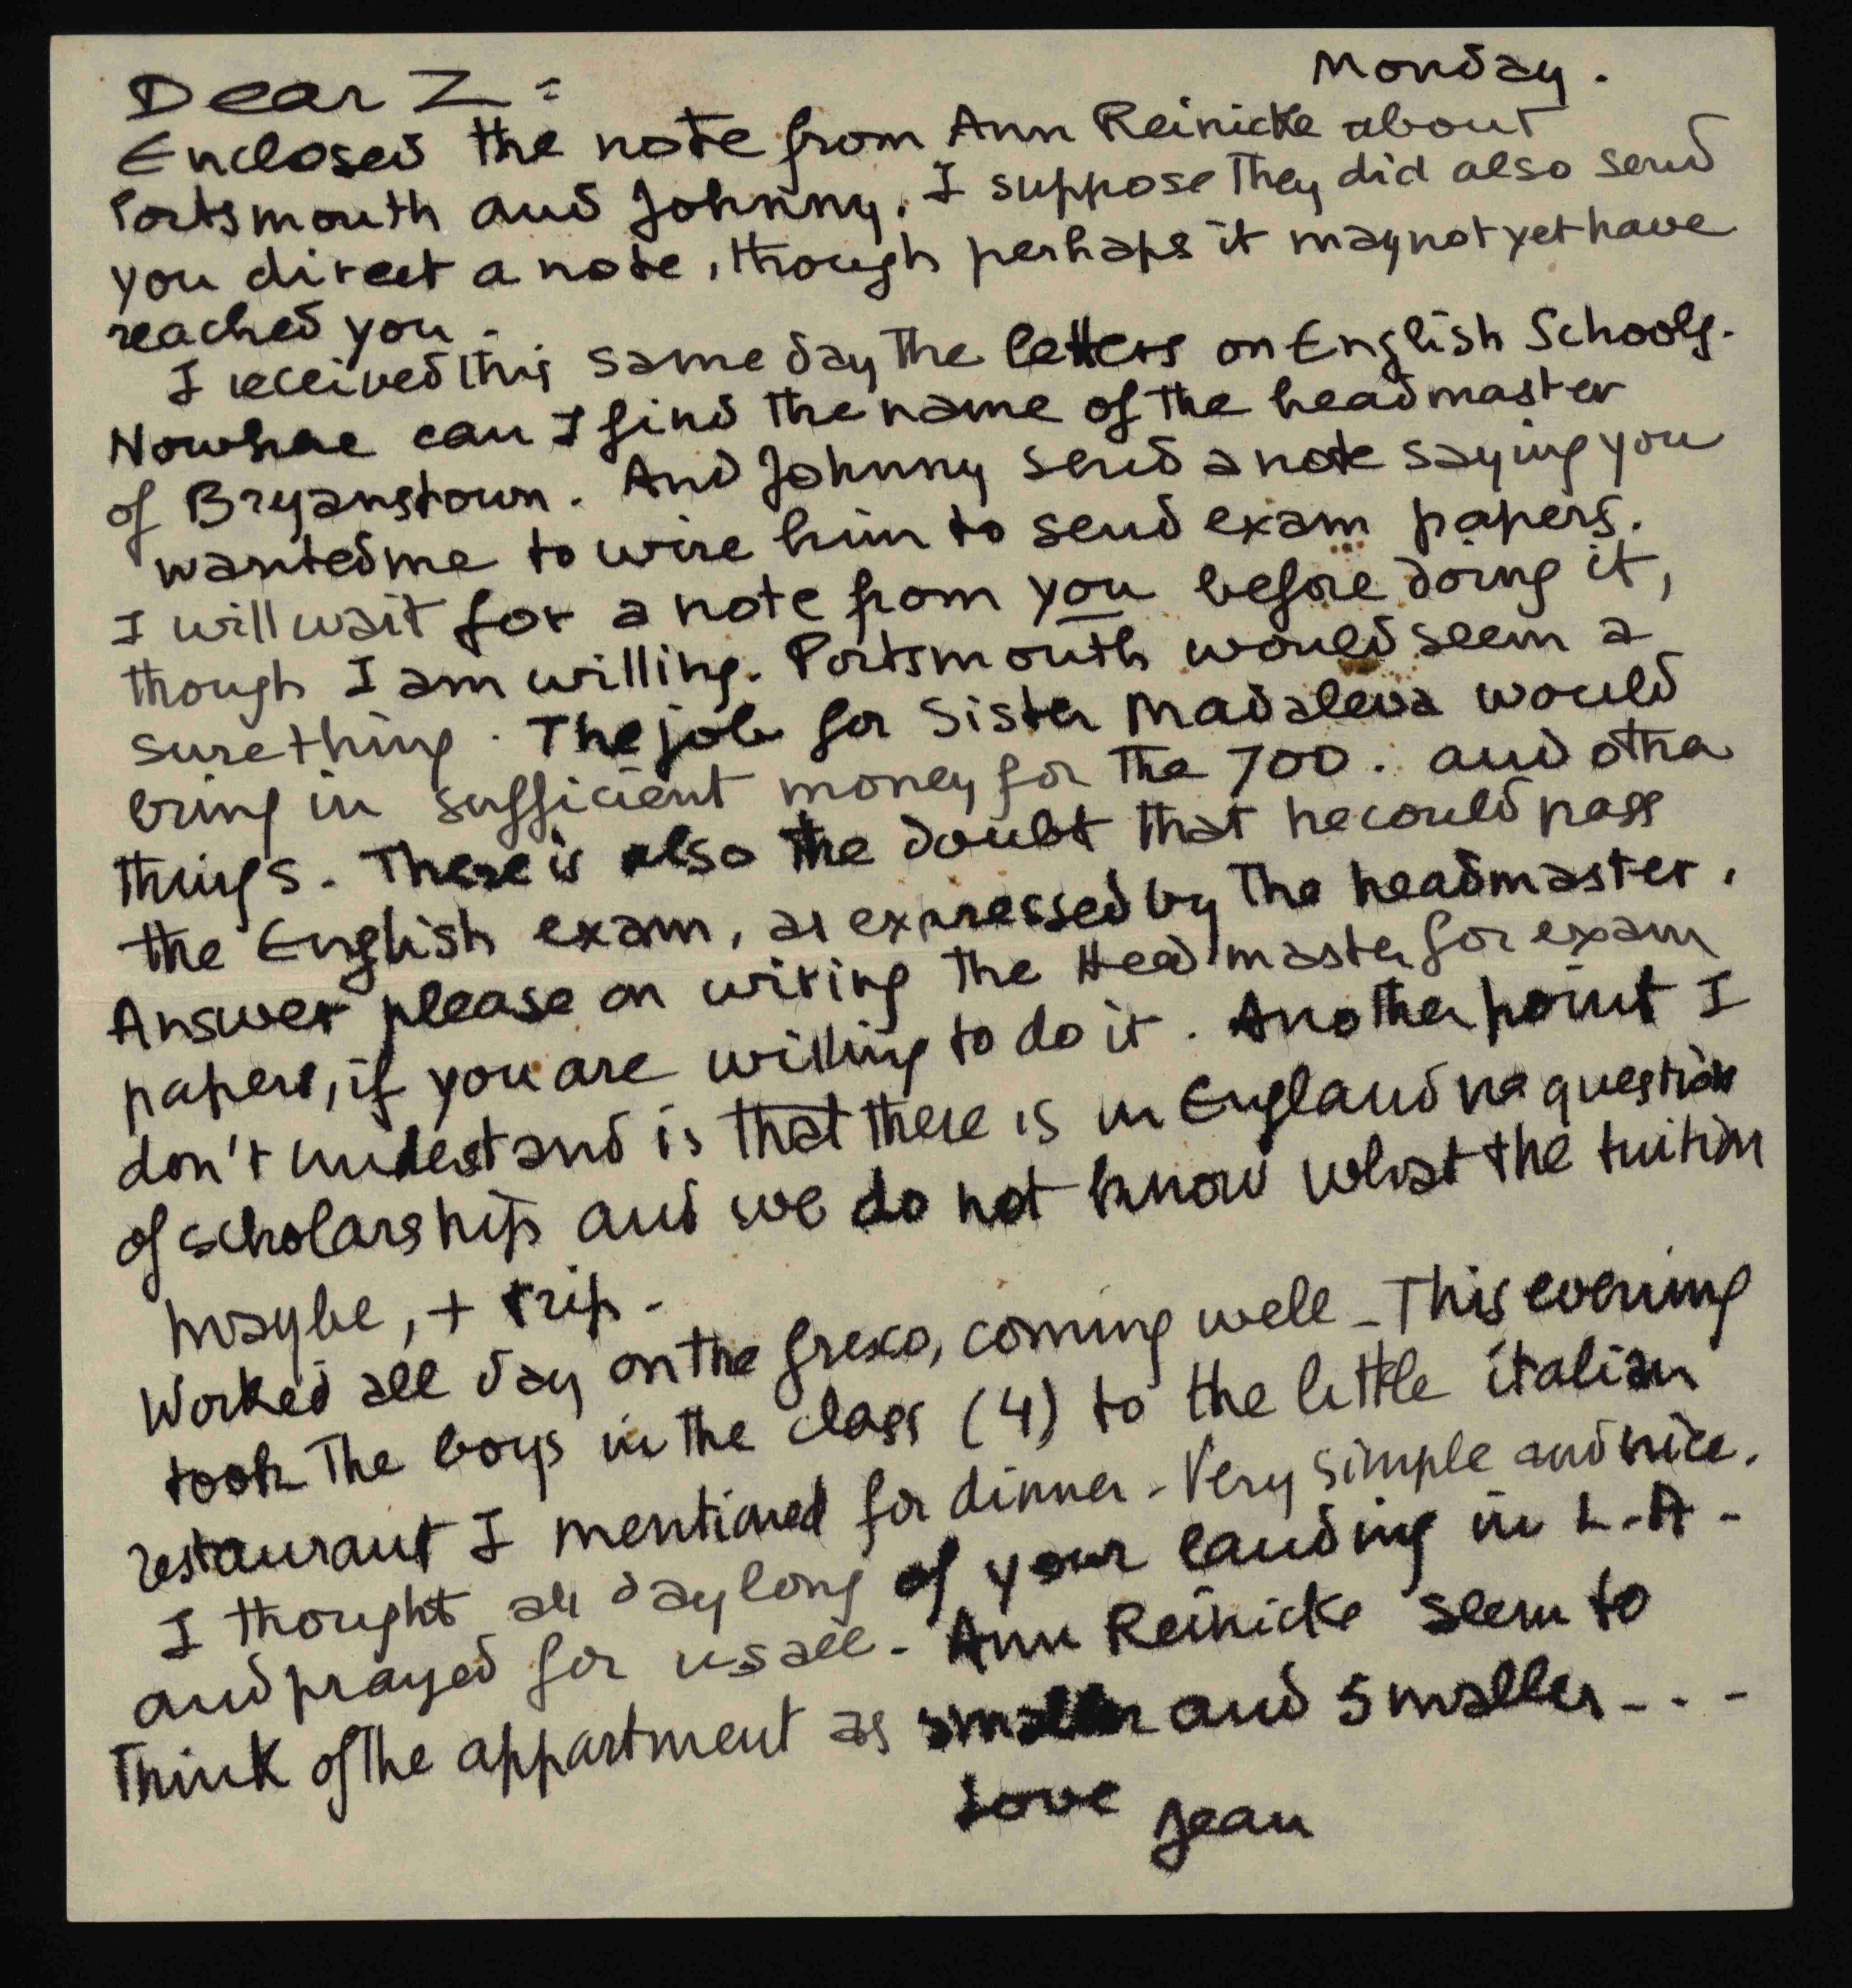 Monday.
Dear Z:
Enclosed the note from Ann Reinicke about
Portsmouth and Johnny. I suppose they did also send
you direct a note, though perhaps it may not yet have
reached you.
I received this same day the letters on English Schools.
Nowhere can I find the name of the headmaster
of Bryanstown. And Johnny send a note saying you
wanted me to wire him to send exam papers.
I will wait for a note from you before doing it,
though I am willing. Portsmouth would seem a
sure thing. The job for Sister Madaleva would
bring in sufficient money for the 700. and other
things. There is also the doubt that he could pass
the English exam, as expressed by the headmaster.
Answer please on writing the Headmaster for exam
papers, if you are willing to do it. Another point I
don't understand is that there is in England no question
of scholarships and we do not know what the tuition
maybe, + trip.
Worked all day on the fresco, coming well - This evening
took the boys in the class (4) to the little italian
restaurant I mentioned for dinner - Very simple and nice.
I thought all day long of your landing in L.A.
and prayed for us all - Ann Reinicke seem to
think of the appartment as smaller and smaller - - -
Love Jean